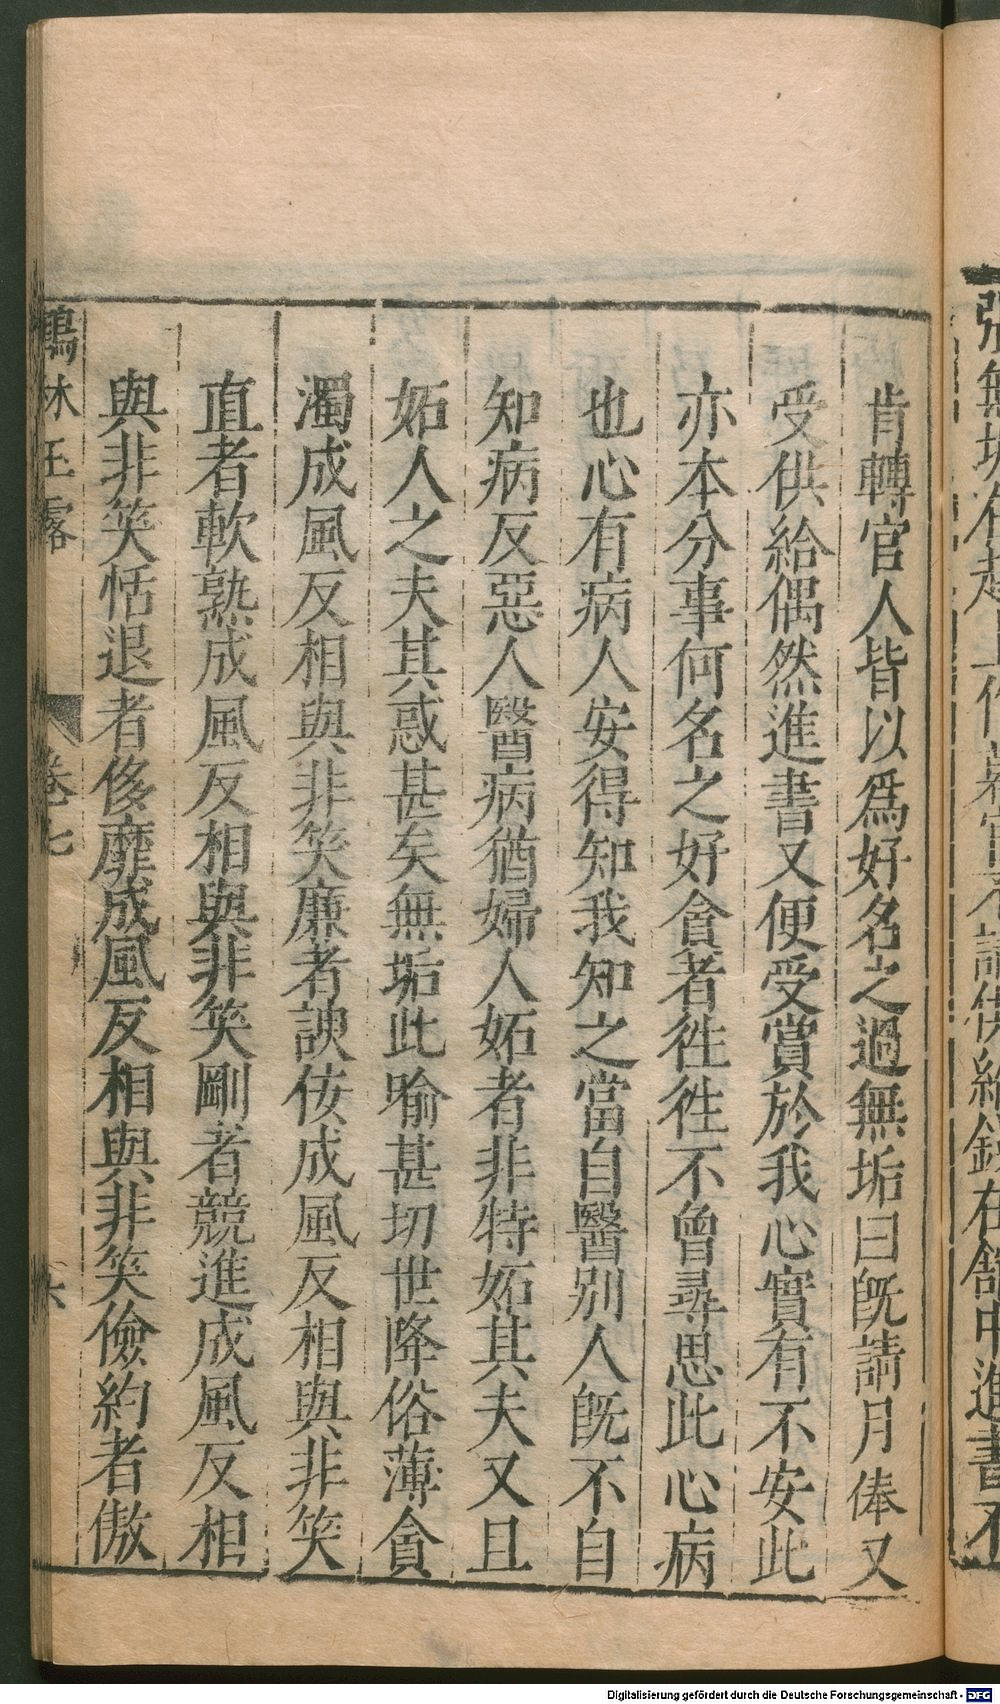 張無垢在越上作幕官不請供給錢在館中進書不
肯轉官人皆以爲好名之過無垢曰旣請月俸又
受供給偶然進書又便受賞於我心實有不安此
亦本分事何名之好貪者徃徃不曾尋思此心病
也心有病人安得知我知之當自醫別人旣不自
知病反惡人醫病猶婦人妬者非特妬其夫又且
妬人之夫其惑甚矣無垢此喻甚切世降俗薄貪
濁成風反相與非笑廉者諛佞成風反相與非笑
直者軟熟成風反相與非笑剛者競進成風反相
與非笑恬退者侈靡成風反相與非笑儉約者傲
鶴林玉露
卷七
六
Digitalisierung gefördert durch die Deutsche Forschungsgemeinschaft - DFG